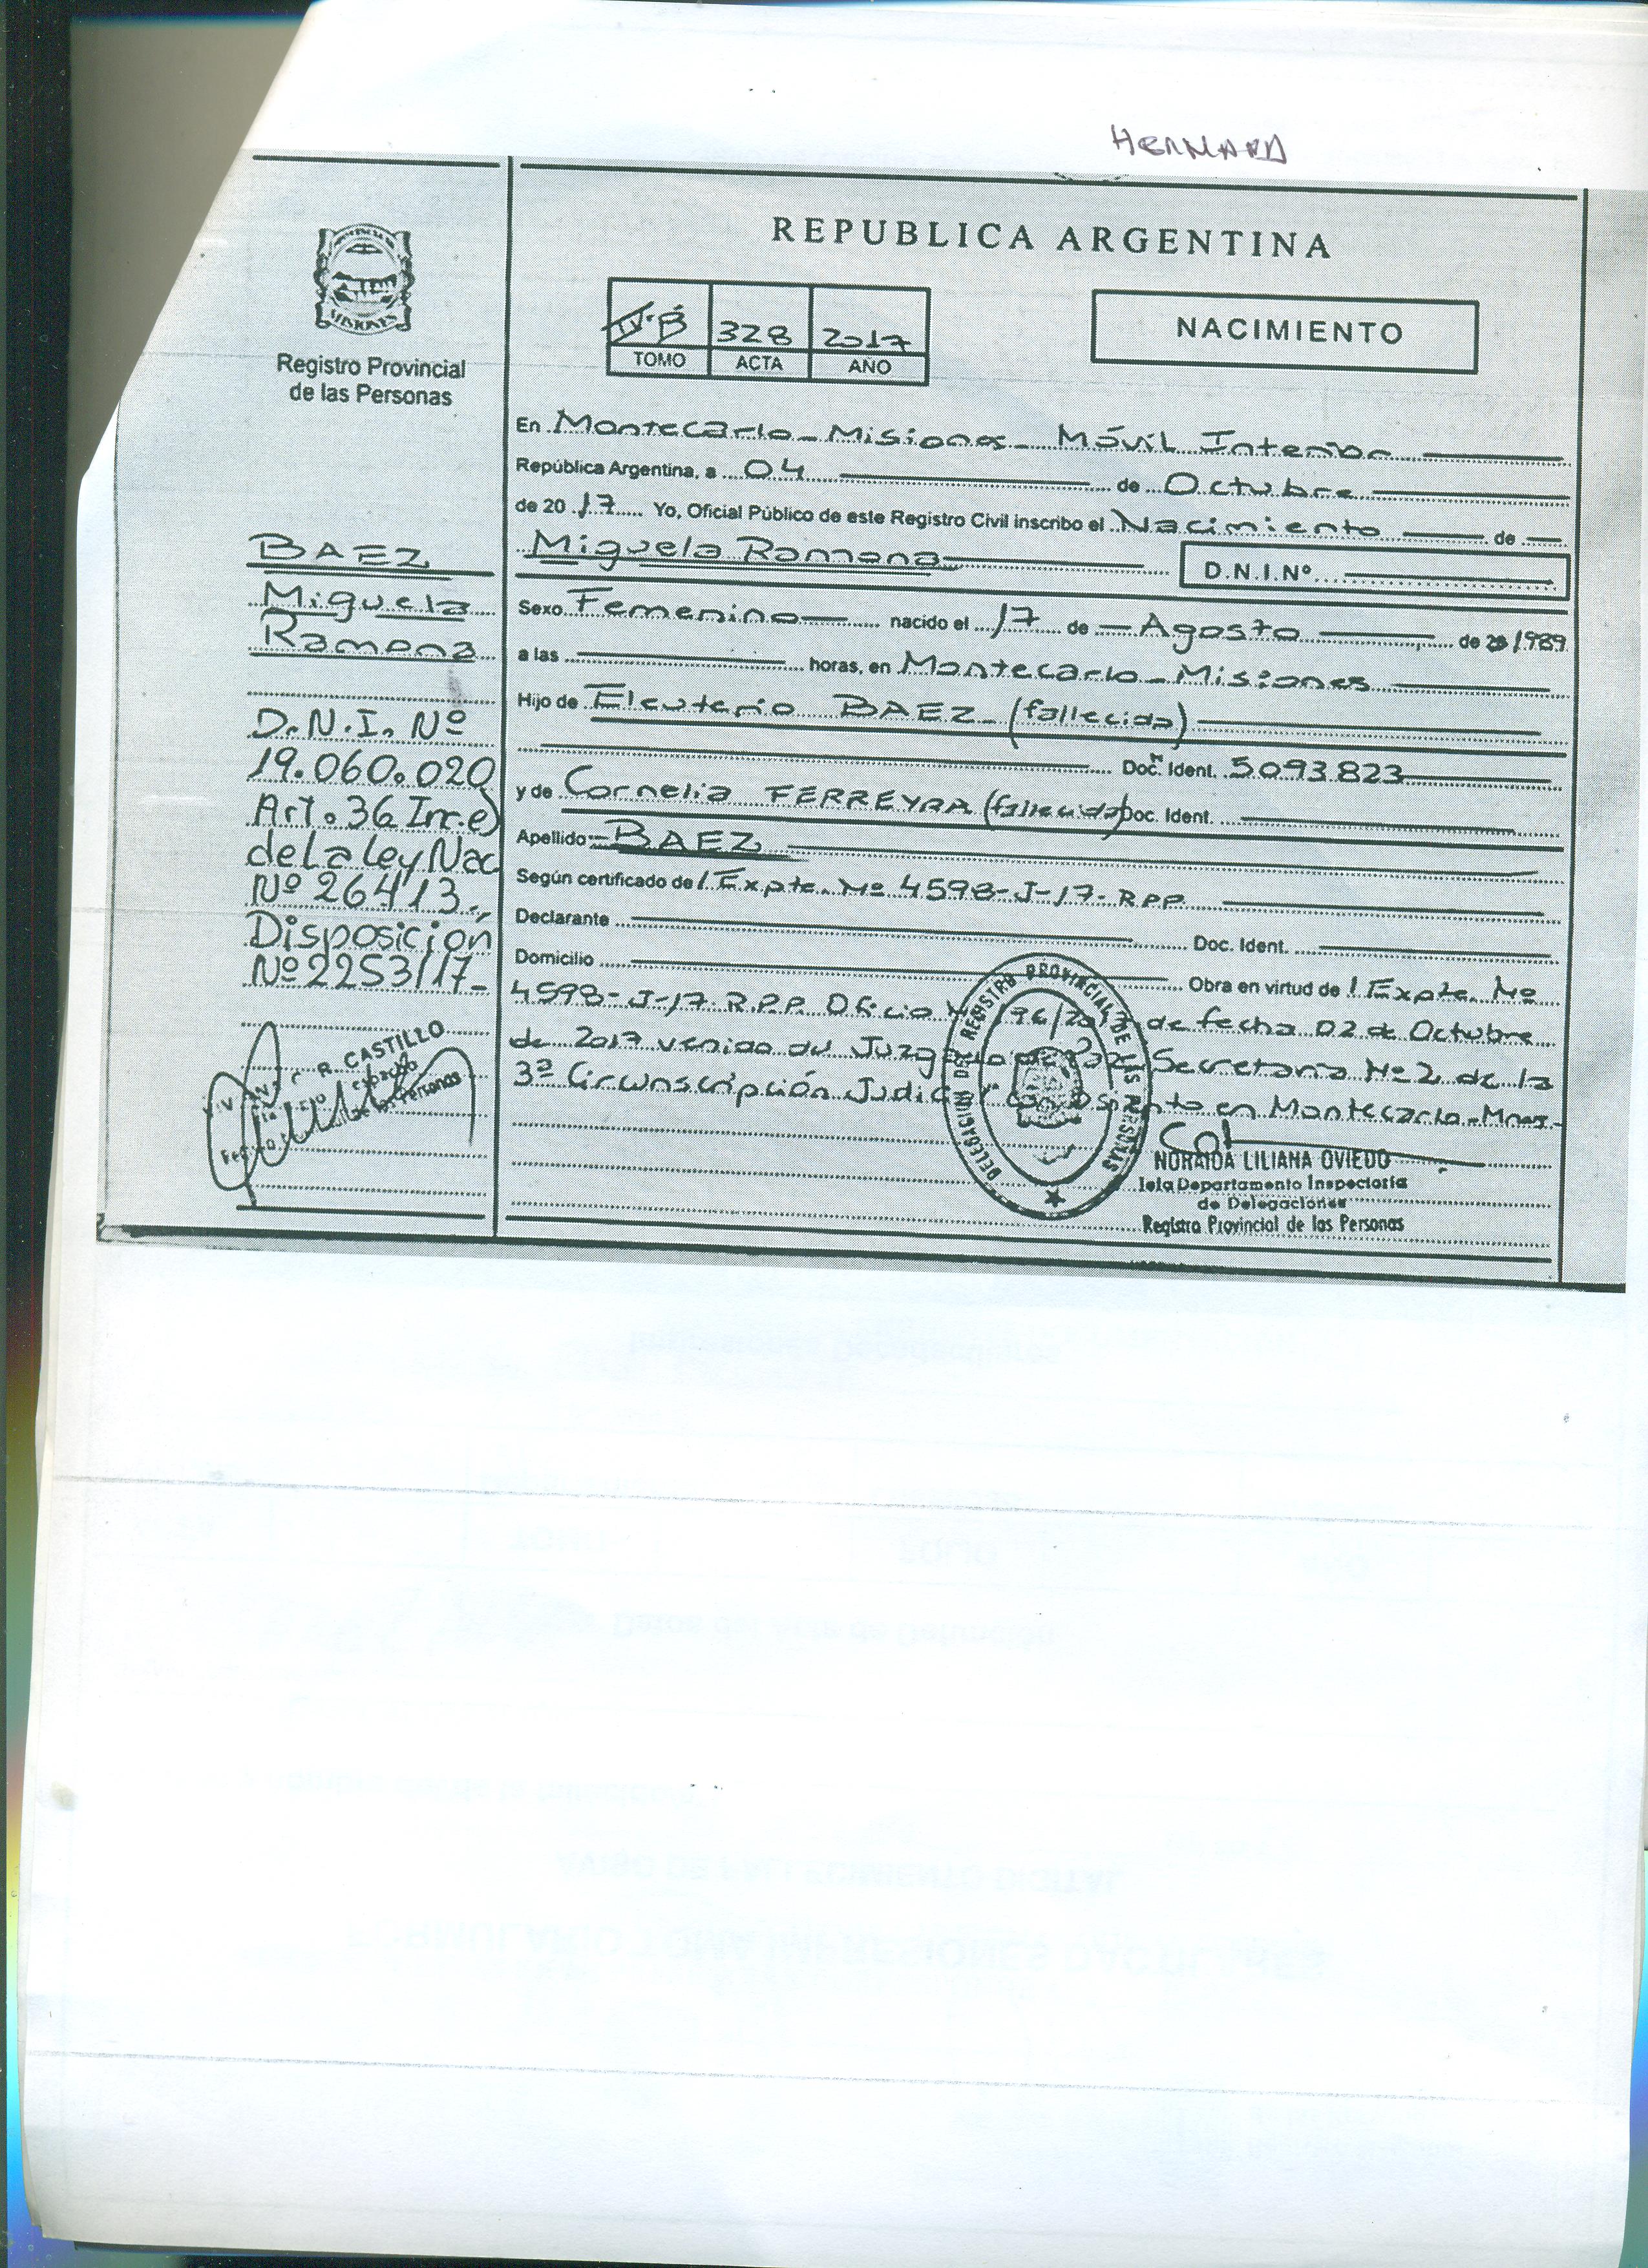 HERMANA
REPUBLICA ARGENTINA
MISIONES
Registro Provincial
de las Personas
IV-B 328 2017
TOMO ACTA AÑO
NACIMIENTO
BAEZ
Miguela
Ramona
D.N.I. Nº
19.060.020
Art. 36 Inc. e)
de La ley Nac
Nº 26413.,
Disposición
Nº 2253/17-
R. CASTILLO
de las Personas
En Montecarlo - Misiones - Móvil Interior
República Argentina, a 04 de Octubre
de 20 17 Yo, Oficial Público de este Registro Civil inscribo el Nacimiento de
Miguela Ramona D.N.I.Nº
Sexo Femenino nacido el 17 de Agosto de 1989
a las horas, en Montecarlo - Misiones
Hijo de Eleuterio BAEZ - (fallecido)
Doc. Ident. 5093823
y de Cornelia FERREYRA (fallecida) Doc. Ident.
Apellido BAEZ
Según certificado de / Expte. Nº 4598-J-17- R.P.P.
Declarante Doc. Ident.
Domicilio Obra en virtud de / Expte. Nº
4598-J-17-R.P.P. Oficio de fecha 02 de Octubre
de 2017 venido del Juzgado de Paz Secretaria Nº 2 de la
3ª Circunscripción Judicial con asiento en Montecarlo - Mnes.-
DELEGACION DEL REGISTRO PROVINCIAL DE LAS PERSONAS
NORAIDA LILIANA OVIEDO
Jefa Departamento Inspectoria
de Delegaciones
Registro Provincial de las Personas